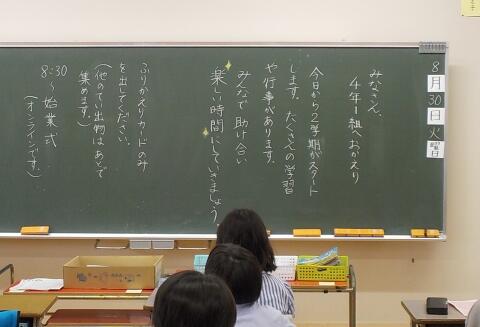 8月30日火曜日
みなさん、
4年1組へおかえり
今日から2学期がスタート
します。たくさんの学習
や行事があります。
みんなで助け合い
楽しい時間にしていきましょう
ふりかえりカードのみ
を出してください。
(他のてい出物はあとで
集めます。)
8:30〜始業式
(オンラインです。)